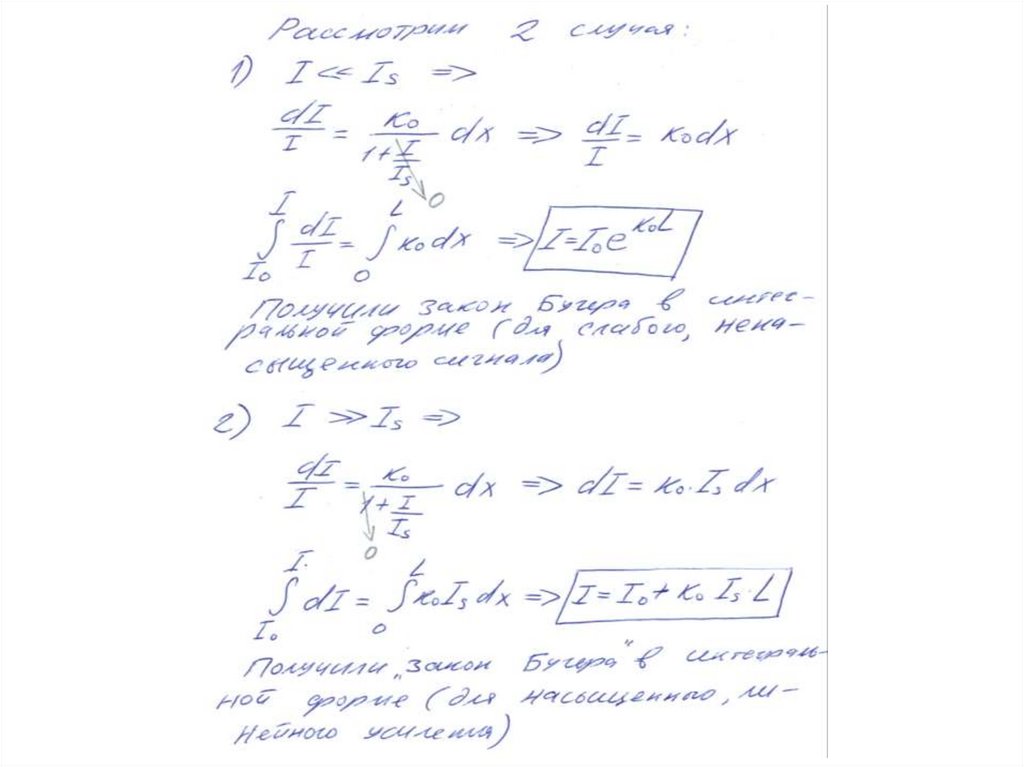 Рассмотрим 2 случая:
1) I << Is =>
dI/I = к0/(1+I/Is) dx => dI/I = к0dx
0
∫ I0 I dI/I = ∫ 0 L к0dx => I=I0e^к0L
Получили закон Бугера в интег-
ральной форме (для слабого, нена-
сыщенного сигнала)
2) I >> Is =>
dI/I = к0/(1+I/Is) dx => dI = к0·Is dx
0
∫ I0 I dI = ∫ 0 L к0Isdx => I = I0 + к0 Is·L
Получили „закон Бугера" в интеграль-
ной форме (для насыщенного, ли-
нейного усиления)